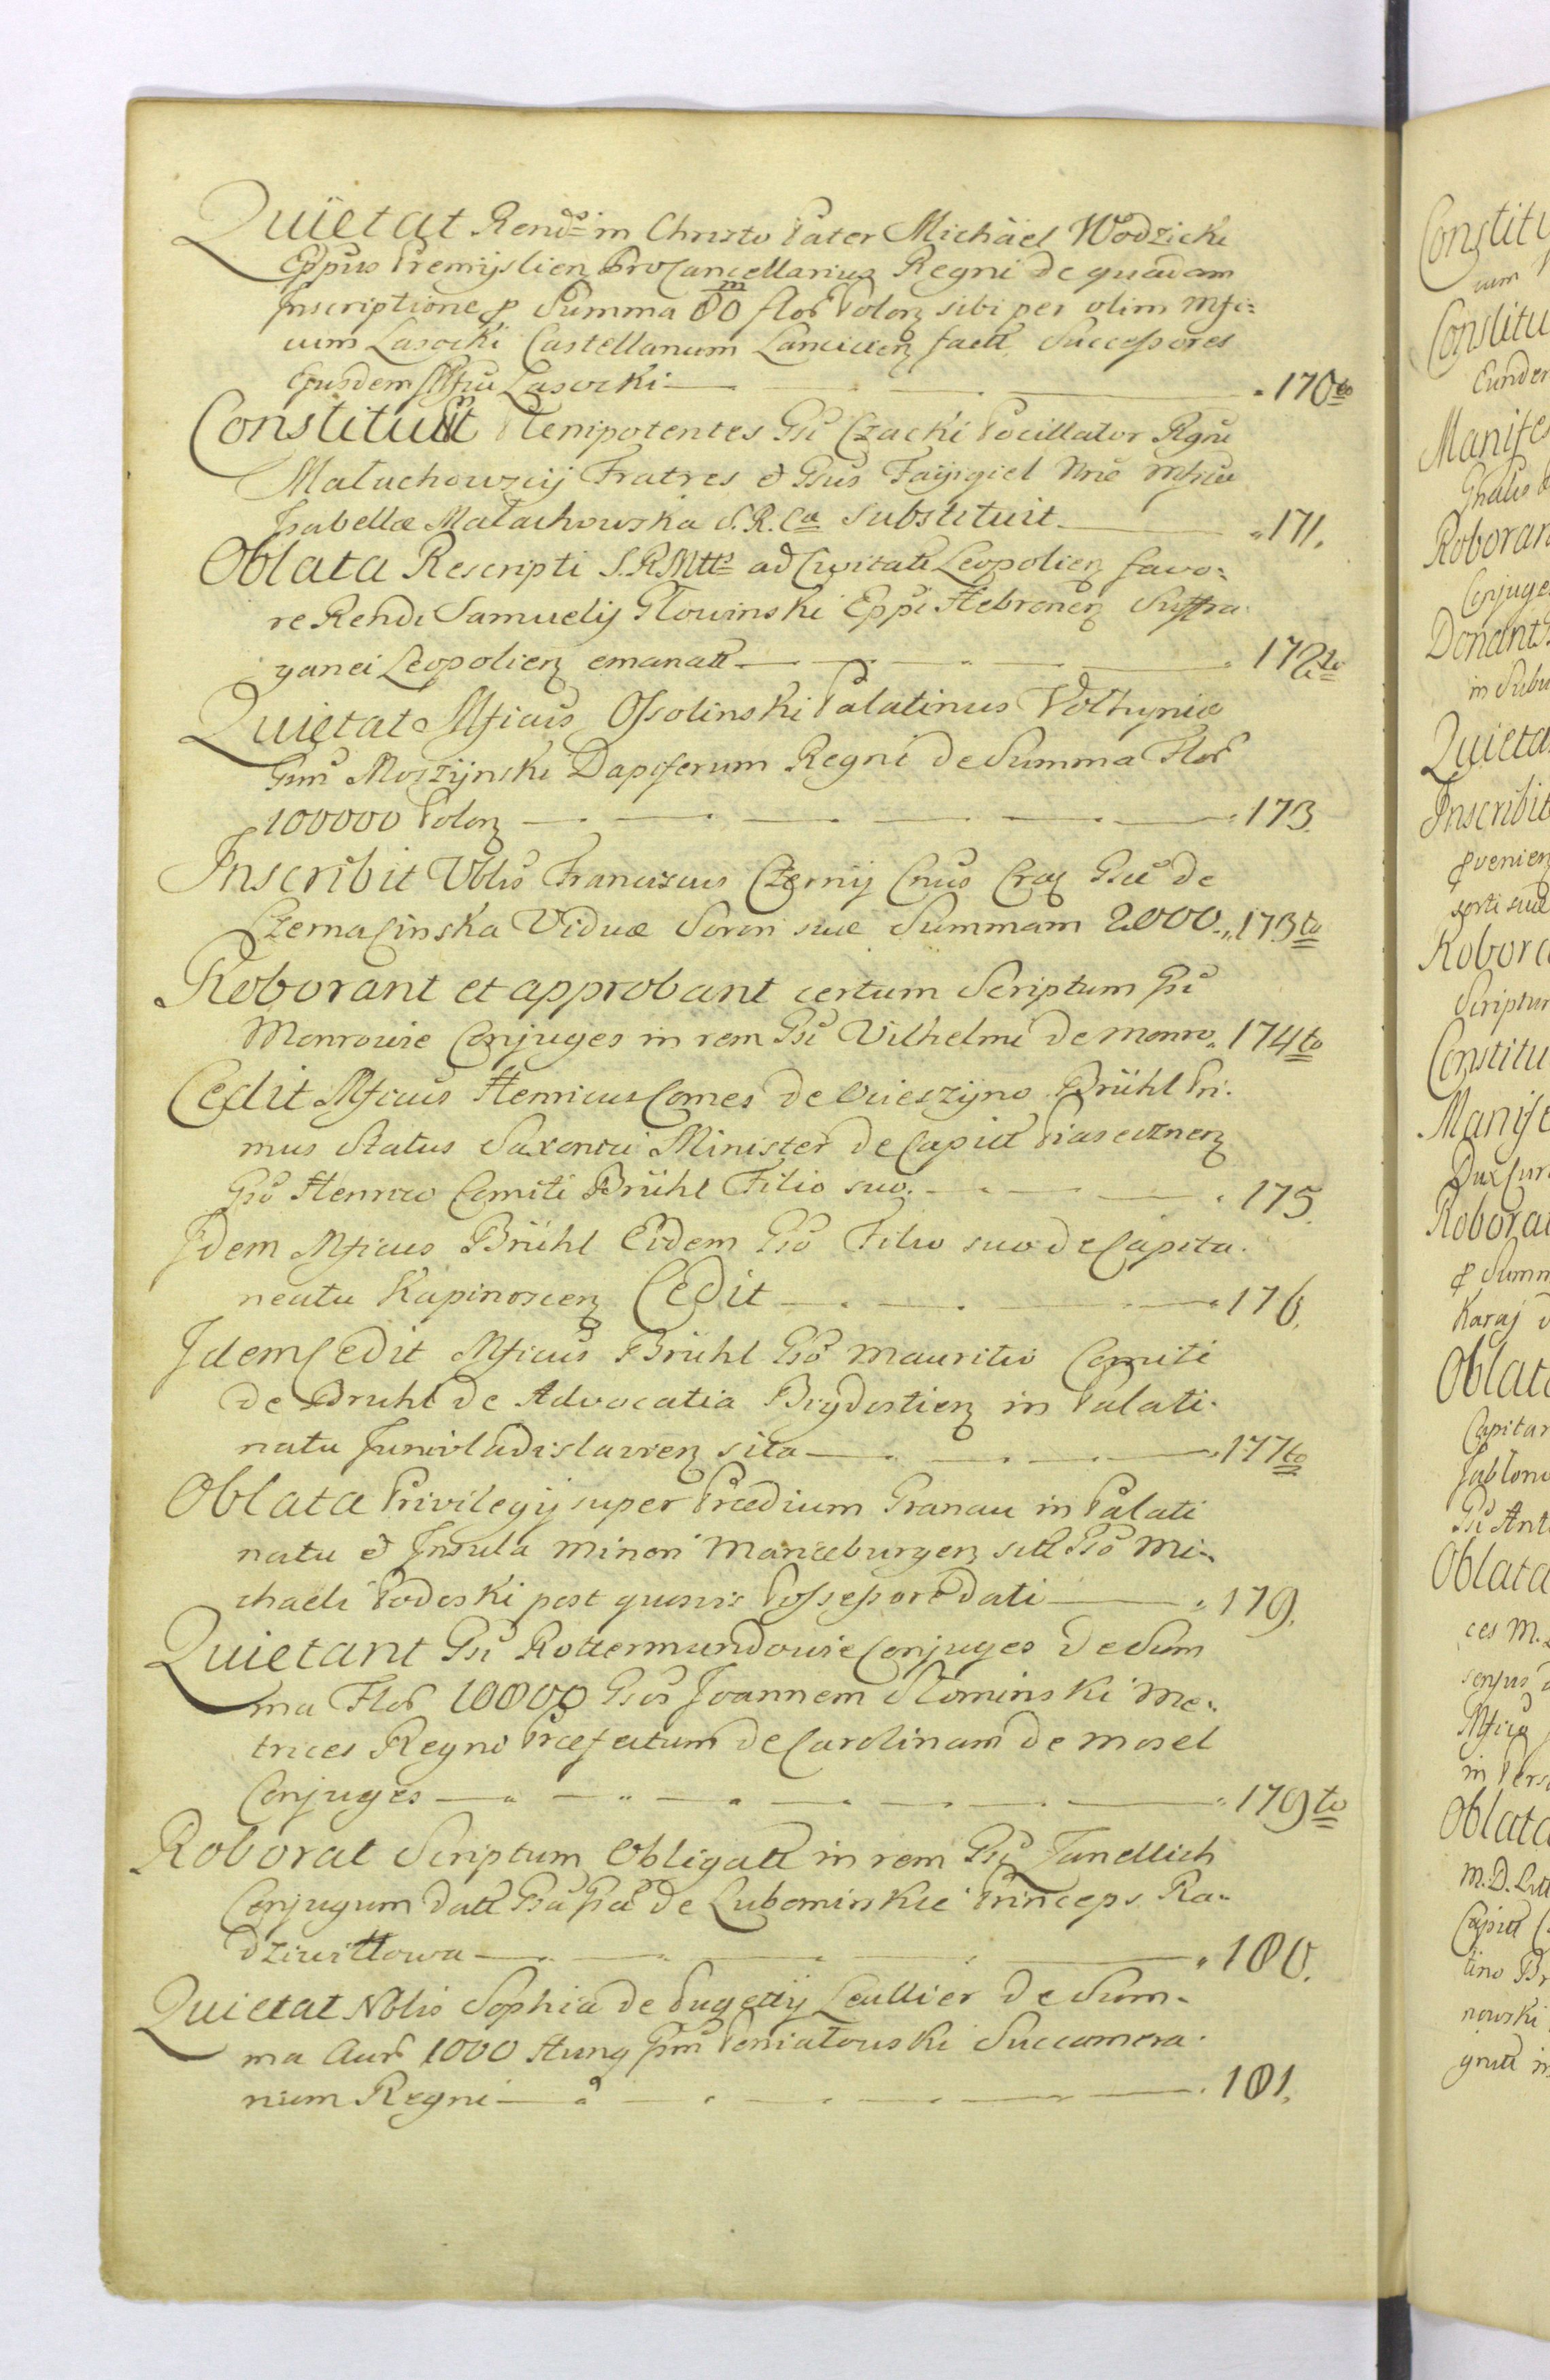 Quietat Rend͠s in Christo Pater Michael Wodzicki
Eppus Premislien ProCancellarius Regni de quadam
Inscriptione p Summa 80 m flor Polon sibi per olim Mfi=
cum Lasocki Castellanum Lancicien fact Successores
Ejusdem Mfici Lasocki 170to
Constituunt Plenipotentes Gsi Czacki Pocillator Rgni
Małachowscij Fratres et Gsus Fayigiel Nne Mficae
Isabellae Małachowska S. R. Ca substituit 171.
Oblata Rescripti S.R.Mttis ad Civitatē Leopolien favo=
re Rendi Samuelis Głowinski Eppi Hebronen Suffra
ganei Leopolien emanatt 172to
Quietat Mficus Ossolinski Palatinus Volhyniae
Gsm Moszynski Dapiferum Regni de Summa Flor
100000 Polon 173.
Inscribit Nblis Franciscus Czerny Cnus Crac Gsae de
Czerna Cinska Viduae Sorori suae Summam 2000. 173to
Roborant et approbant certum Scriptum Gsi
Monrowie Conjuges in rem Gsi Vilhelmi de Monro. 174to
Cedit Mficus Henricus Comes de Cieszyno Brühl Pri.
mus Status Saxonici Minister de Capitt Piasecznen
Gso Henrico Comiti Brühl Filio suo. 175.
Idem Mficus Brühl Eidem Gso Filio suo de Capita.
neatu Kapinoscen Cedit 176.
Idem Cedit Mficus Brühl Gso Mauritio Comiti
de Bruhl de Advocatia Bydostien in Palati.
natu Junivladislavien sita 177to
Oblata Privilegij super Praedium Granau in Palati
natu et Insula minori Marieburgen sitt Gso Mi=
chaeli Podoski post quosvis Possessore dati 179.
Quietant Gsi Rottermundowie Conjuges de Sum
ma Flor 10000 Gsos Joannem Słominski Me=
trices Regni Praefectum et Carolinam de Mosel
Conjuges 179to
Roborat Scriptum Obligatt in rem Gsi Janellich
Conjugum datt Gsa de Lubomirskie Princeps Ra=
dziwiłłowa 180.
Quietat Nblis Sophia de Pugetty Leullier de Sum=
ma Aur 1000 Hung Gsm Poniatowski Succamera.
rium Regni 181.
Constitu
cum
Constitu
Eunder
Manifes
Roboran
Conjuge
Donant
in Subu
Quieta
Inscribit
sorti suae
Robora
Scriptu
Constitu
Manife
Dux Cur
Robora
p Summ
Karaj d
Oblata
Capitan
Jabłono
Gsi Ant
Oblata
ces M.
sensus
Mficu
in Vers
Oblata
M. D. Litt
Capitt
tino Br
nowski